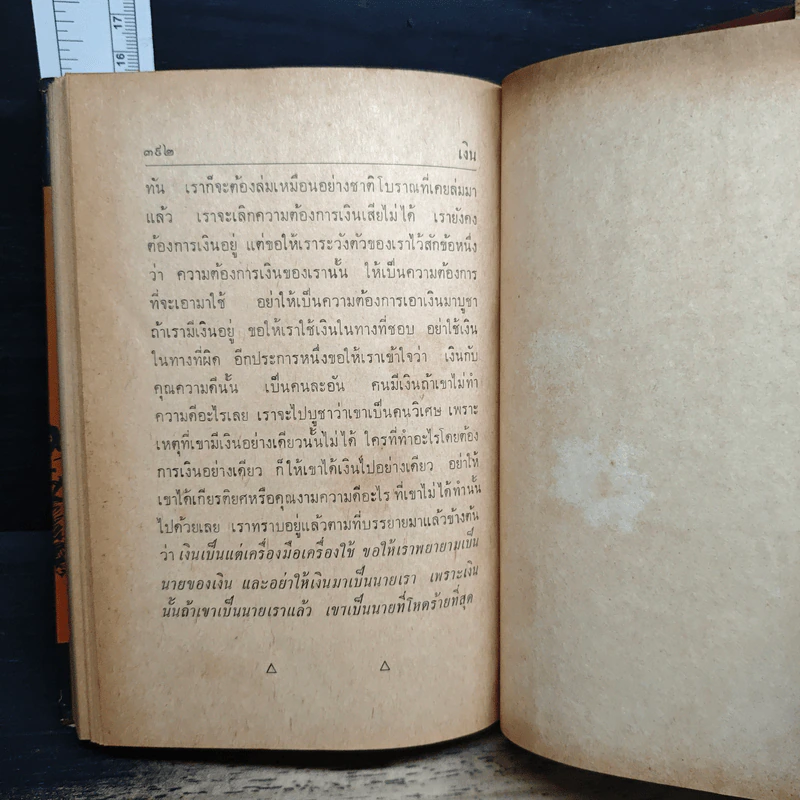 17
16
๓๙๒ เงิน
ทัน เราก็จะต้องล่มเหมือนอย่างชาติโบราณที่เคยล่มมา
แล้ว เราจะเลิกความต้องการเงินเสียไม่ได้ เรายังคง
ต้องการเงินอยู่ แต่ขอให้เราระวังตัวของเราไว้สักข้อหนึ่ง
ว่า ความต้องการเงินของเรานั้น ให้เป็นความต้องการ
ที่จะเอามาใช้ อย่าให้เป็นความต้องการเอาเงินมาบูชา
ถ้าเรามีเงินอยู่ ขอให้เราใช้เงินในทางที่ชอบ อย่าใช้เงิน
ในทางที่ผิด อีกประการหนึ่งขอให้เราเข้าใจว่า เงินกับ
คุณความดีนั้น เป็นคนละอัน คนมีเงินถ้าเขาไม่ทำ
ความดีอะไรเลย เราจะไปบูชาว่าเขาเป็นคนวิเศษ เพราะ
เหตุที่เขามีเงินอย่างเดียวนั้นไม่ได้ ใครที่ทำอะไรโดยต้อง
การเงินอย่างเดียว ก็ให้เขาได้เงินไปอย่างเดียว อย่าให้
เขาได้เกียรติยศหรือคุณงามความดีอะไร ที่เขาไม่ได้ทำนั้น
ไปด้วยเลย เราทราบอยู่แล้วตามที่บรรยายมาแล้วข้างต้น
ว่า เงินเป็นแต่เครื่องมือเครื่องใช้ ขอให้เราพยายามเป็น
นายของเงิน และอย่าให้เงินมาเป็นนายเรา เพราะเงิน
นั้นถ้าเขาเป็นนายเราแล้ว เขาเป็นนายที่โหดร้ายที่สุด